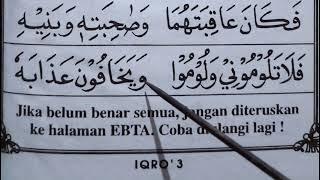 فَكَانَ عَاقِبَتَهُمَا وَصٰحِبَتِهٖ وَبَنِيْهِ
فَلَا تَلُوْمُوْنِيْ وَلُوْمُوْا وَيَخَافُوْنَ عَذَابَهٗ
Jika belum benar semua, jangan diteruskan
ke halaman EBTA. Coba diulangi lagi !
IQRO'3